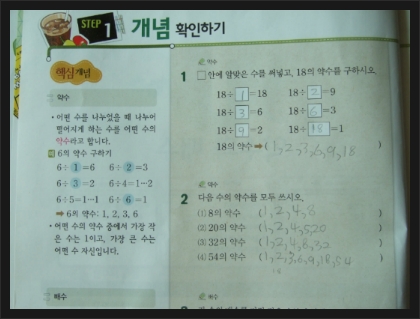 STEP 1 개념 확인하기
핵심개념
약수
• 어떤 수를 나누었을 때 나누어
떨어지게 하는 수를 어떤 수의
약수라고 합니다.
예 6의 약수 구하기
6÷1=6 6÷2=3
6÷3=2 6÷4=1…2
6÷5=1…1 6÷6=1
➡ 6의 약수: 1, 2, 3, 6
• 어떤 수의 약수 중에서 가장 작
은 수는 1이고, 가장 큰 수는
어떤 수 자신입니다.
배수
약수
1 □ 안에 알맞은 수를 써넣고, 18의 약수를 구하시오.
18÷1=18 18÷2=9
18÷3=6 18÷6=3
18÷9=2 18÷18=1
18의 약수 ➡ (1, 2, 3, 6, 9, 18)
약수
2 다음 수의 약수를 모두 쓰시오.
(1) 8의 약수 (1, 2, 4, 8)
(2) 20의 약수 (1, 2, 4, 5, 20)
(3) 32의 약수 (1, 2, 4, 8, 32)
(4) 54의 약수 (1, 2, 3, 6, 9, 18, 54)
배수